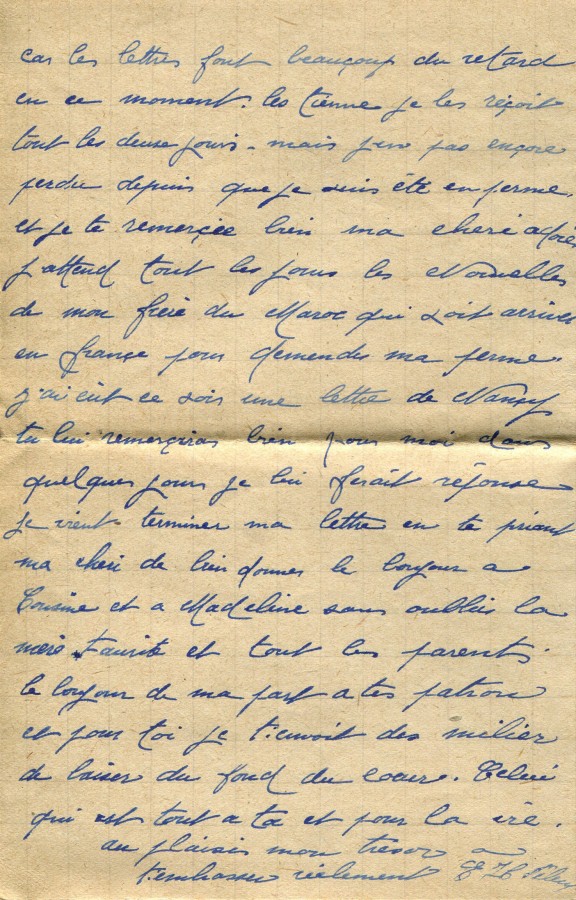 car les lettres font beaucoup du retard
en ce moment. les tienne je les reçoit
tout les deuse jours - mais j'en pas encore
perdu depuis que je suis été en ferme.
et je te remerçie bien ma cheri adoré
j'attend tout les jours les Nouvelles
de mon frère du Maroc qui soit arriver
en françe pour demendes ma ferme.
j'ai eut ce soir une lettre de Nancy
tu lui remerçiras bien pour moi dans
quelques jours je lui ferait réponse
je vient terminer ma lettre en te priant
ma cheri de bien donner le bonjour a
Cousine et a Madeline sans oublis la
mère et tout les parents.
le bonjour de ma part a tes patron
et pour toi je t'envoit des milier
de baiser du fond du coeur. Celui
qui est tout a toi et pour la vie.
au plaisir mon tresor
t'embrasser réelement